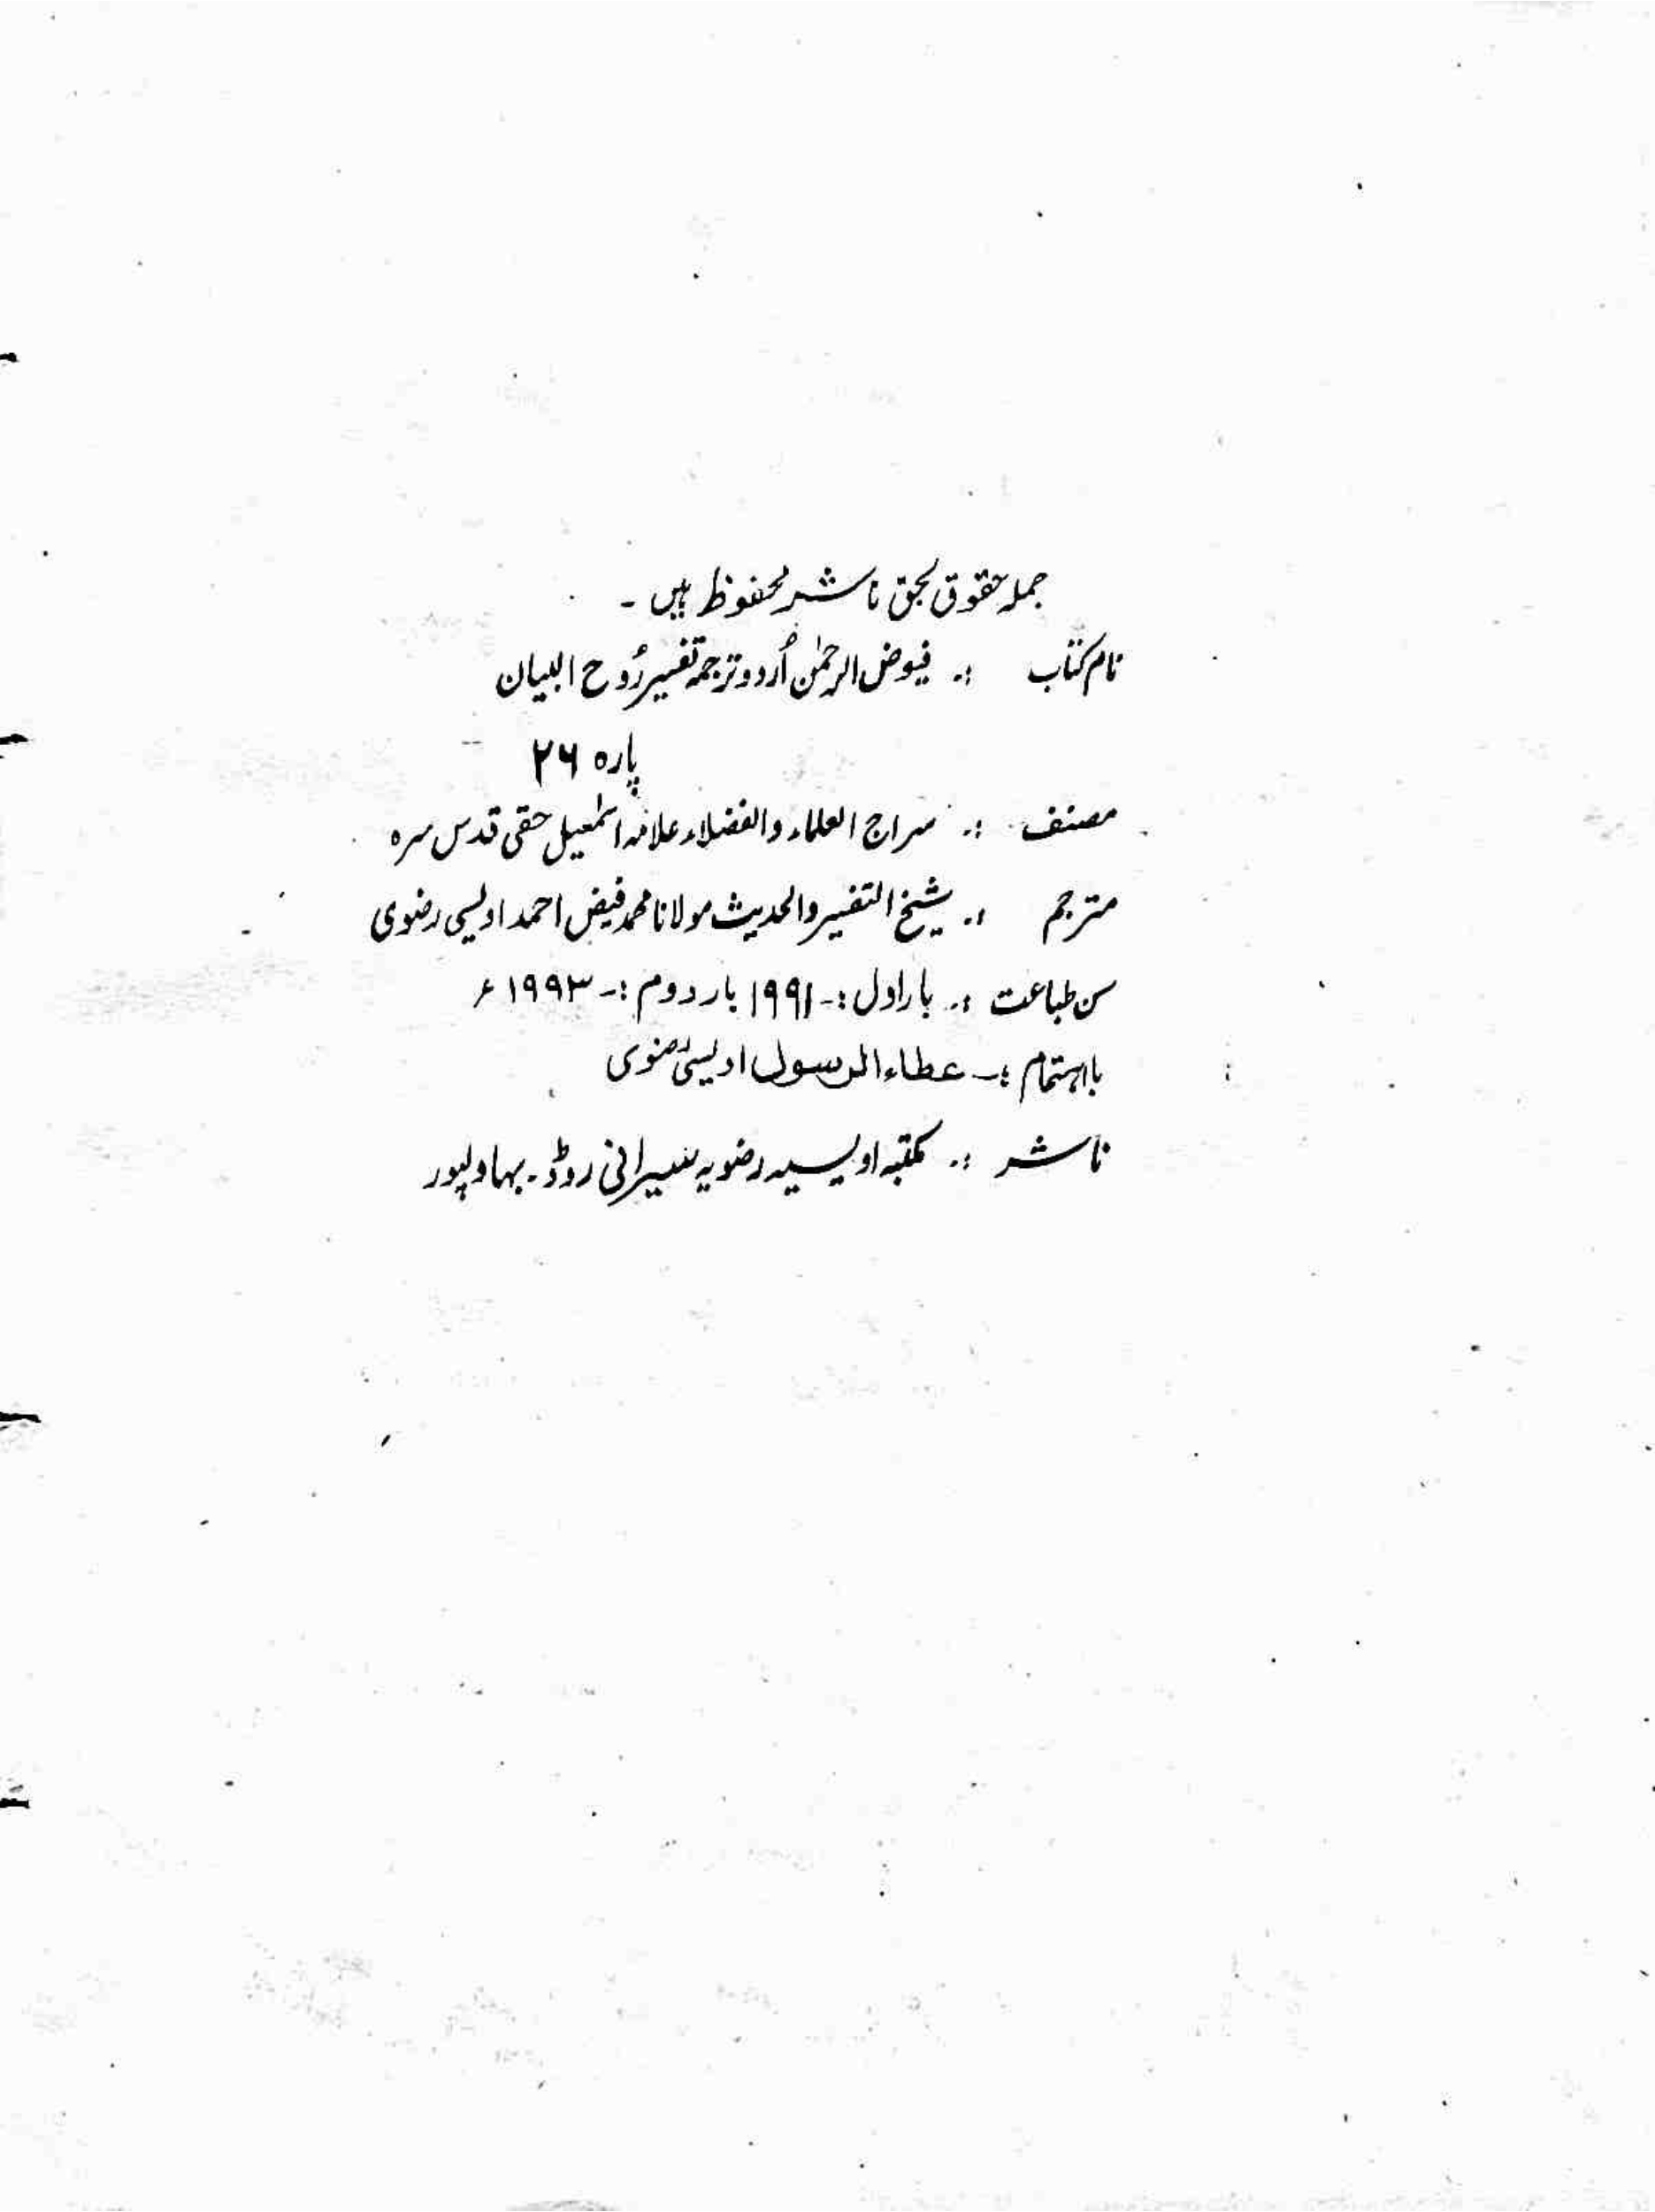 جملہ حقوق بحق ناشر محفوظ ہیں ۔
نام کتاب :۔ فیوض الرحمٰن اُردو ترجمہ تفسیر رُوح البیان
پارہ ۲۶
مصنف :۔ سراج العلماء والفضلاء علامہ اسمٰعیل حقی قدس سرہ
مترجم :۔ شیخ التفسیر والحدیث مولانا محمد فیض احمد اویسی رضوی
سن طباعت :۔ بار اول :۔ ۱۹۹۱ بار دوم :۔ ۱۹۹۳ ء
باہتمام :۔ عطاء الرسول اویسی رضوی
ناشر :۔ مکتبہ اویسیہ رضویہ سیرانی روڈ۔ بہاولپور